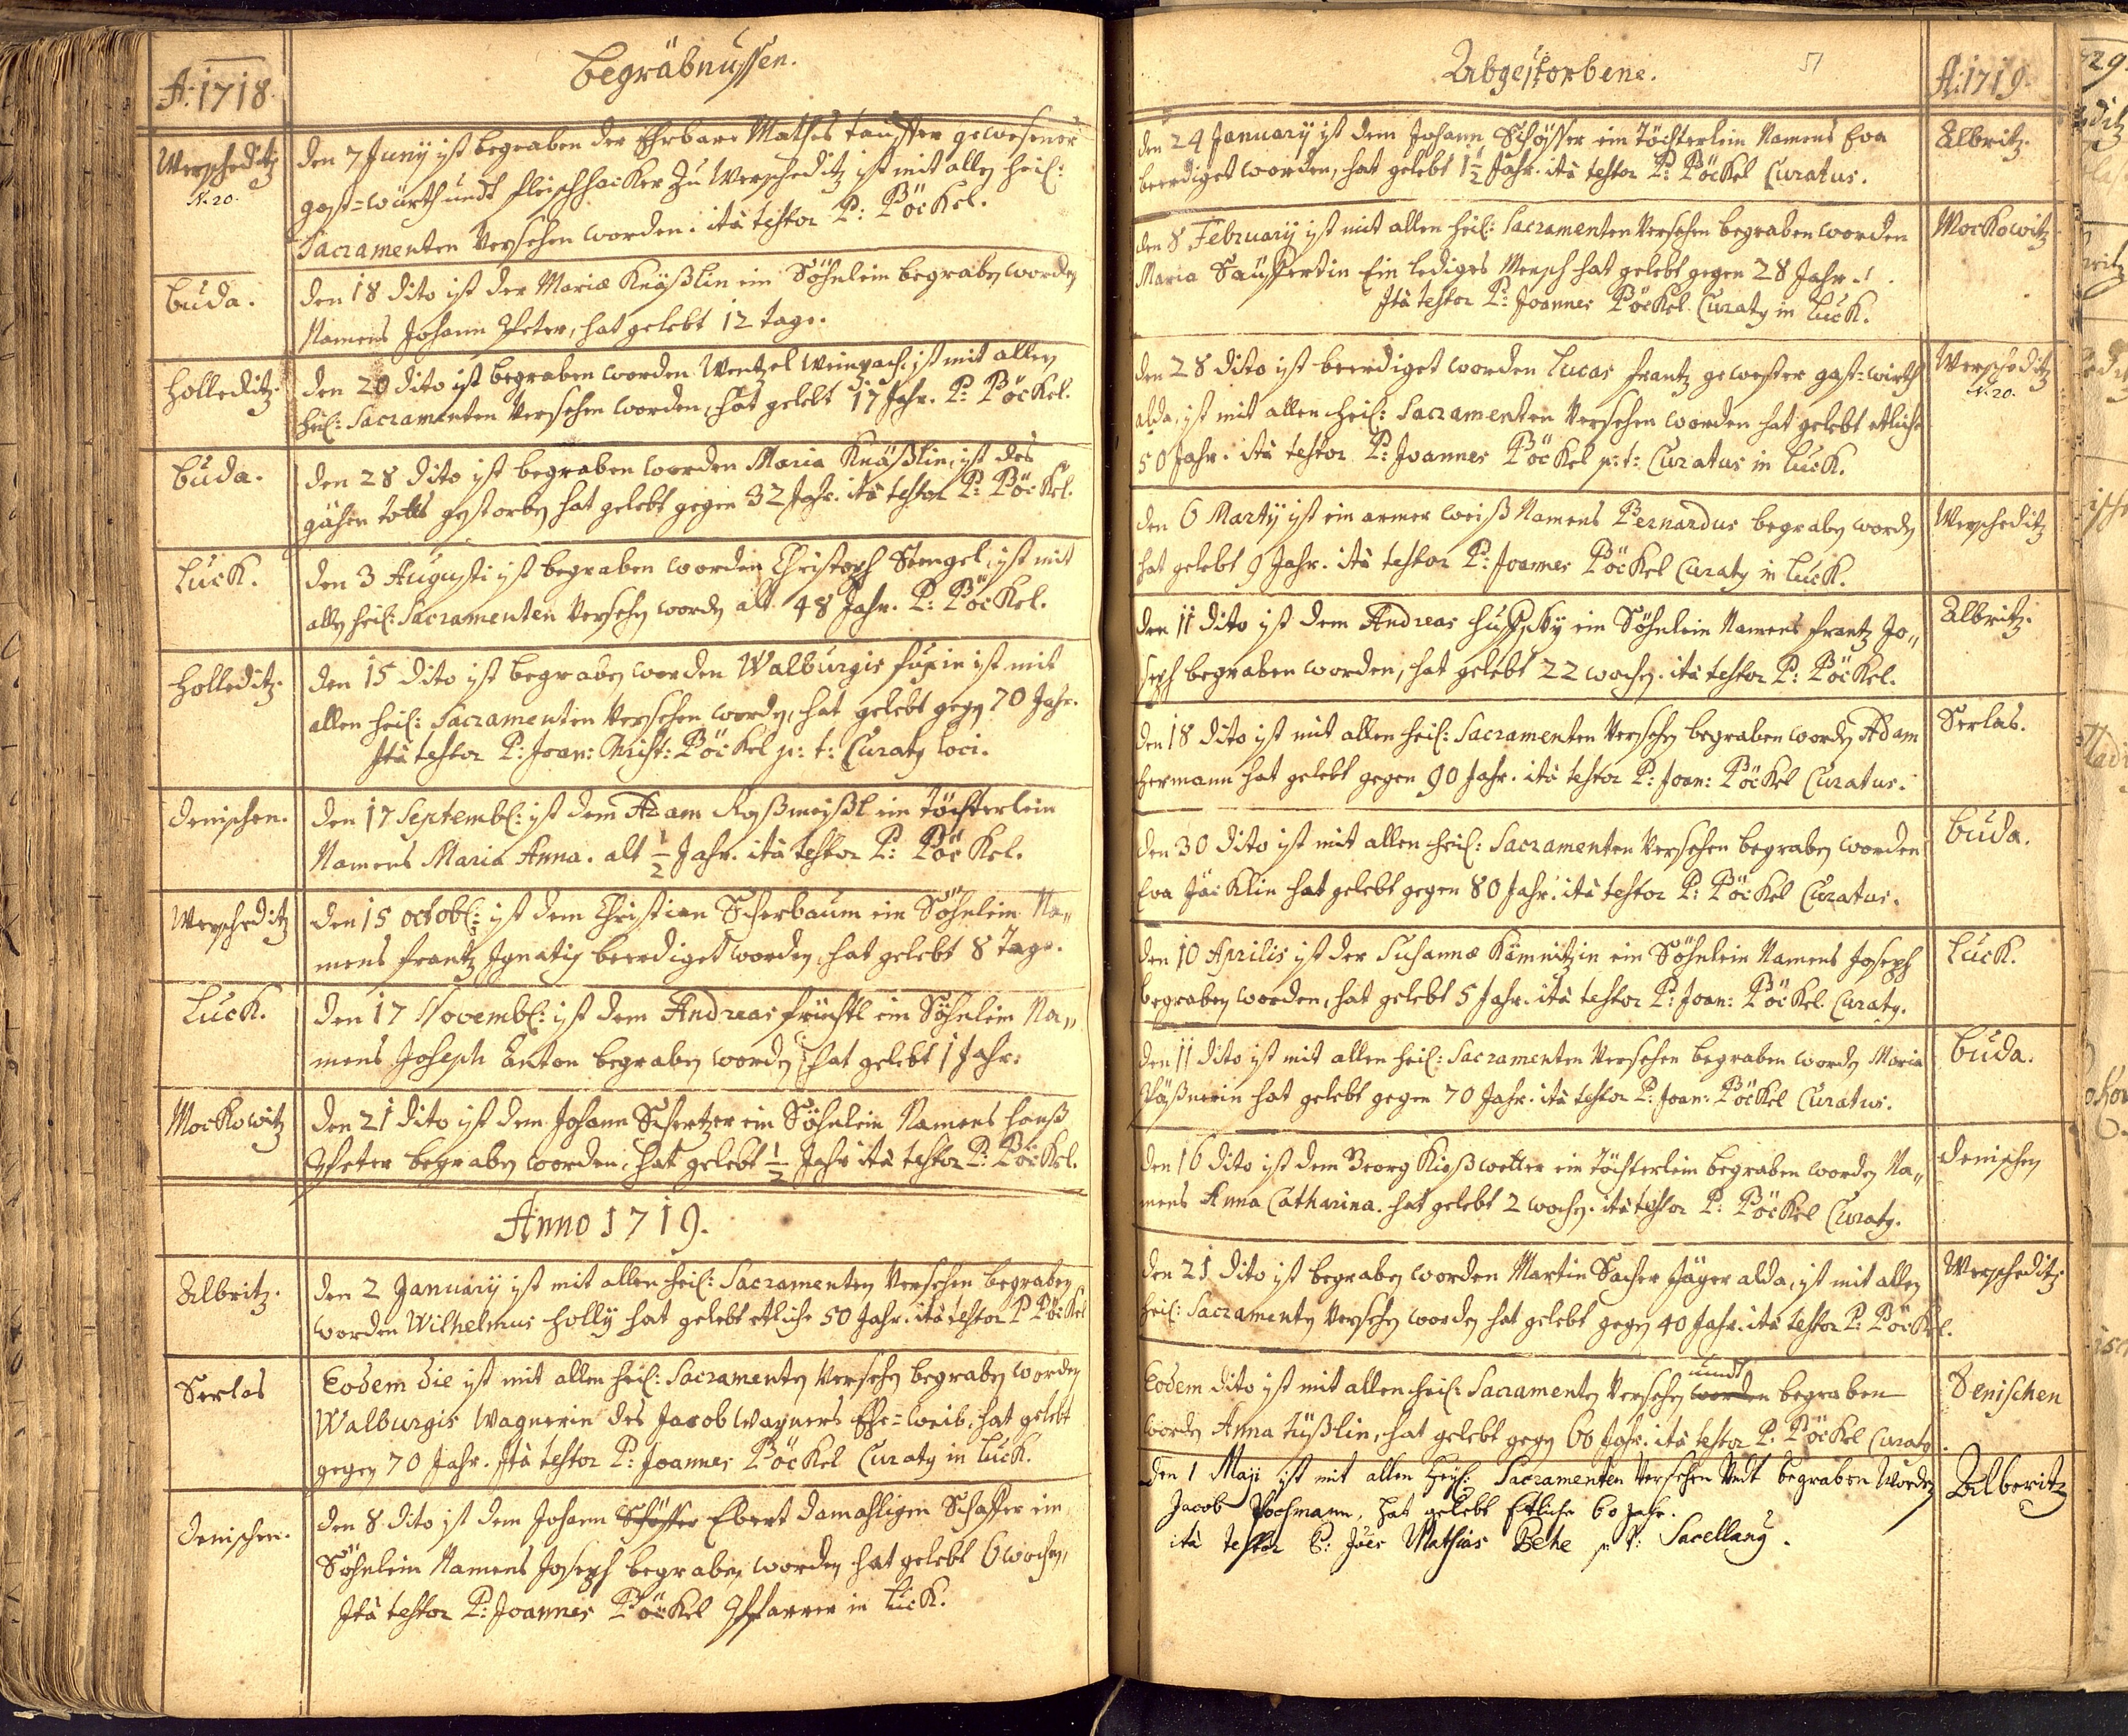 A: 1718.
Begräbnussen.
Werscheditz
N. 20.
den 7 Junÿ ist begraben der Ehrbare Mathes Tauffer gewesener
gast=würth undt fleischhacker zu Werscheditz ist mit allen heil:
Sacramenten Versehen worden. ità testor P: Böckel.
Buda.
den 18 dito ist der Mariæ Knäßlin ein Söhnlein begraben worden
Namens Johann Peter, hat gelebt 12 tage.
Holleditz.
den 20 dito ist begraben worden Wentzel ist mit allen
heil: Sacramenten Versehen worden, hat gelebt 17 Jahr. P: Böckel.
Buda.
den 28 dito ist begraben worden Maria Knäßlin, ist des
gähen todts gestorben hat gelebt gegen 32 Jahr. ità testor P: Böckel.
Luck.
den 3 Augusti ist begraben worden Christoph Stengel, ist mit
allen heil: Sacramenten Versehen worden alt 48 Jahr. P: Böckel.
Holleditz.
den 15 dito ist begraben worden Walburgis fuxin ist mit
allen heil: Sacramenten Versehen worden, hat gelebt gegen 70 Jahr.
Ità testor P: Joan: Christ: Böckel p: t: Curatus loci.
Denischen.
den 17 Septembl: ist dem Adam Roßmeißl ein töchterlein
Namens Maria Anna. alt 1/2 Jahr. ità testor P: Böckel.
Werscheditz
den 15 octobl: ist dem Christian Scherbaum ein Söhnlein Na„
mens frantz Ignatius beerdiget worden, hat gelebt 8 Tage.
Luck.
den 17 Novembl: ist dem Andreas früchtl ein Söhnlein Na„
mens Joseph Anton begraben worden, hat gelebt 1 Jahr.
Mockowitz
den 21 dito ist dem Johann Schertzer ein Söhnlein Namens Hanß
Peter begraben worden, hat gelebt 1/2 Jahr ità testor P: Böckel.
Anno 1719.
Albritz.
den 2 Januarÿ ist mit allen heil: Sacramenten Versehen begraben
worden Wilhelmus Hollÿ hat gelebt etliche 50 Jahr. ità testor P Böckel
Serlas
Eodem die ist mit allen heil: Sacramenten Versehen begraben worden
Walburgis Wagnerin des Jacob Wagners Ehe=weib, hat gelebt
gegen 70 Jahr. Ità testor P: Joannes Böckel Curatus in Luck.
Denischen.
den 8 dito ist dem Johann Schösser Ebert damahligen Schaffer ein
Söhnlein Namens Joseph begraben worden hat gelebt 6 wochen,
Ità testor P: Joannes Böckel Pfarrer in Luck.
Abgestorbene.
51
A: 1719.
den 24 Januarÿ ist dem Johann Schösser ein töchterlein Namens Eva
beerdiget worden, hat gelebt 1 1/2 Jahr. ità testor P: Böckel Curatus.
Albritz.
den 8 Februarÿ ist mit allen heil: Sacramenten Versehen begraben worden
Maria Ein lediges Mensch hat gelebt gegen 28 Jahr.
Ità testor P: Joannes Böckel Curatus in Luck.
Mockowitz
den 28 dito ist beerdiget worden Lucas frantz gewester gast=wirth
alda, ist mit allen heil: Sacramenten Versehen worden hat gelebt etliche
50 Jahr. ità testor P: Joannes Böckel p: t: Curatus in Luck.
Werscheditz
N. 20.
den 6 Martÿ ist ein armer weiß Namens Bernardus begraben worden
hat gelebt 9 Jahr. ità testor P: Joannes Böckel Curatus in Luck.
Werscheditz
den 11 dito ist dem Andreas ein Söhnlein Namens frantz Jo„
seph begraben worden, hat gelebt 22 wochen. ità testor P: Böckel.
Albritz.
den 18 dito ist mit allen heil: Sacramenten Versehen begraben worden Adam
Hermann hat gelebt gegen 90 Jahr. ità testor P: Joan: Böckel Curatus.
Serlas.
den 30 dito ist mit allen heil: Sacramenten Versehen begraben worden
Eva Jäcklin hat gelebt gegen 80 Jahr. ità testor P: Böckel Curatus.
Buda.
den 10 Aprilis ist der Susannæ Kämnitzin ein Söhnlein Namens Joseph
begraben worden, hat gelebt 5 Jahr. ità testor P: Joan: Böckel Curatus.
Luck.
den 11 dito ist mit allen heil: Sacramenten Versehen begraben worden Maria
hat gelebt gegen 70 Jahr. ità testor P: Joan: Böckel Curatus.
Buda.
den 16 dito ist dem Georg Kießwetter ein töchterlein begraben worden Na„
mens Anna Catharina. hat gelebt 2 wochen. ità testor P: Böckel Curatus.
Denischen
den 21 dito ist begraben worden Martin Sacher Jäger alda, ist mit allen
heil: Sacramenten Versehen worden hat gelebt gegen 40 Jahr. ità testor P: Böckel.
Werscheditz.
Eodem dito ist mit allen heil: Sacramenten Versehen worden undt begraben
worden Anna tüßlin, hat gelebt gegen 60 Jahr. ità testor P. Böckel Curatus.
Denischen
Den 1 Maji ist mit allen Heyl: Sacramenten Versehen Undt begraben Worden
Jacob Pochmann, hat gelebt Etliche 60 Jahr.
ità testor P: Joës Mathias Behe p. t: Sacellanus.
Albritz